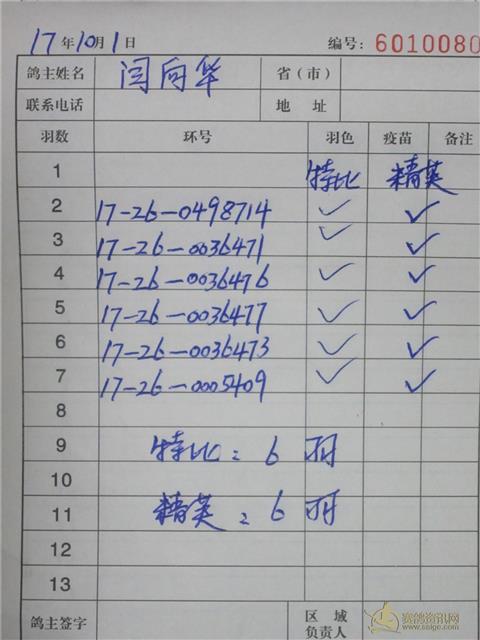 17年10月1日 编号: 6010080
鸽主姓名 闫向华 省(市)
联系电话 地 址
羽数 环号 羽色 疫苗 备注
1 特比 精英
2 17-26-0498714 ✓ ✓
3 17-26-0036471 ✓ ✓
4 17-26-0036476 ✓ ✓
5 17-26-0036477 ✓ ✓
6 17-26-0036473 ✓ ✓
7 17-26-0005409 ✓ ✓
8
9 特比: 6羽
10
11 精英: 6羽
12
13
鸽主签字 区域负责人
赛鸽资讯网
www.saige.com